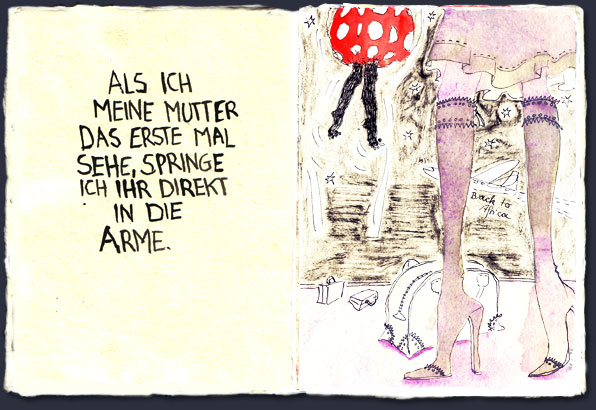 ALS ICH
MEINE MUTTER
DAS ERSTE MAL
SEHE, SPRINGE
ICH IHR DIREKT
IN DIE
ARME.
Back to
Africa